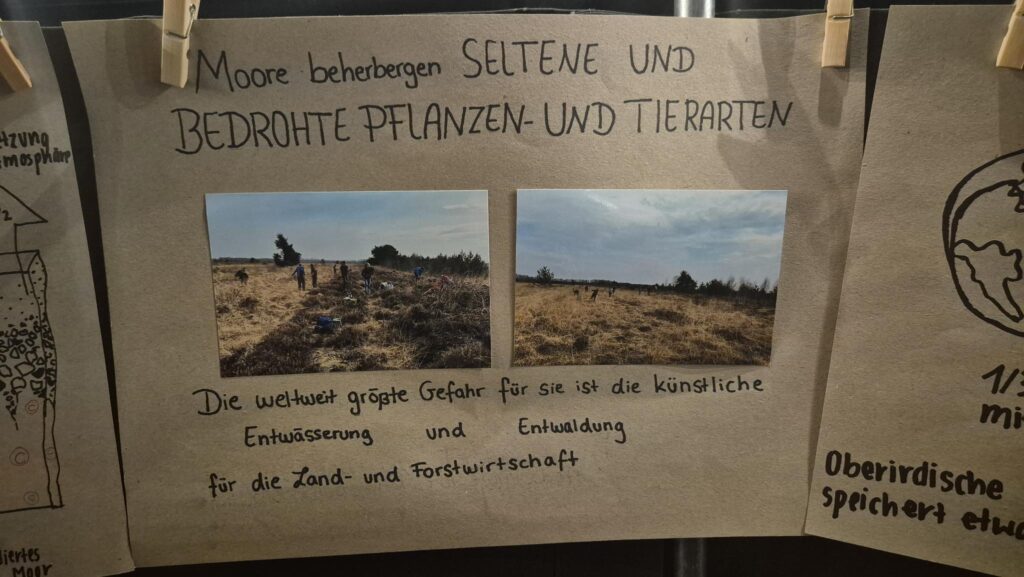 Moore beherbergen SELTENE UND
BEDROHTE PFLANZEN- UND TIERARTEN
Die weltweit größte Gefahr für sie ist die künstliche
Entwässerung und Entwaldung
für die Land- und Forstwirtschaft
Moor
1/3
Oberirdische
speichert